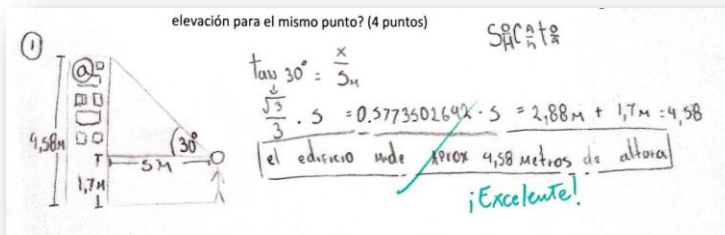 elevación para el mismo punto? (4 puntos)
1
SOH CAH TOA
a
tan 30° = x/5M
√3/3 · 5 = 0.5773502692 · 5 = 2,88M + 1,7M = 4,58
4,58M
30°
5M
el edificio mide Aprox 4,58 Metros de altura
1,7M
¡Excelente!